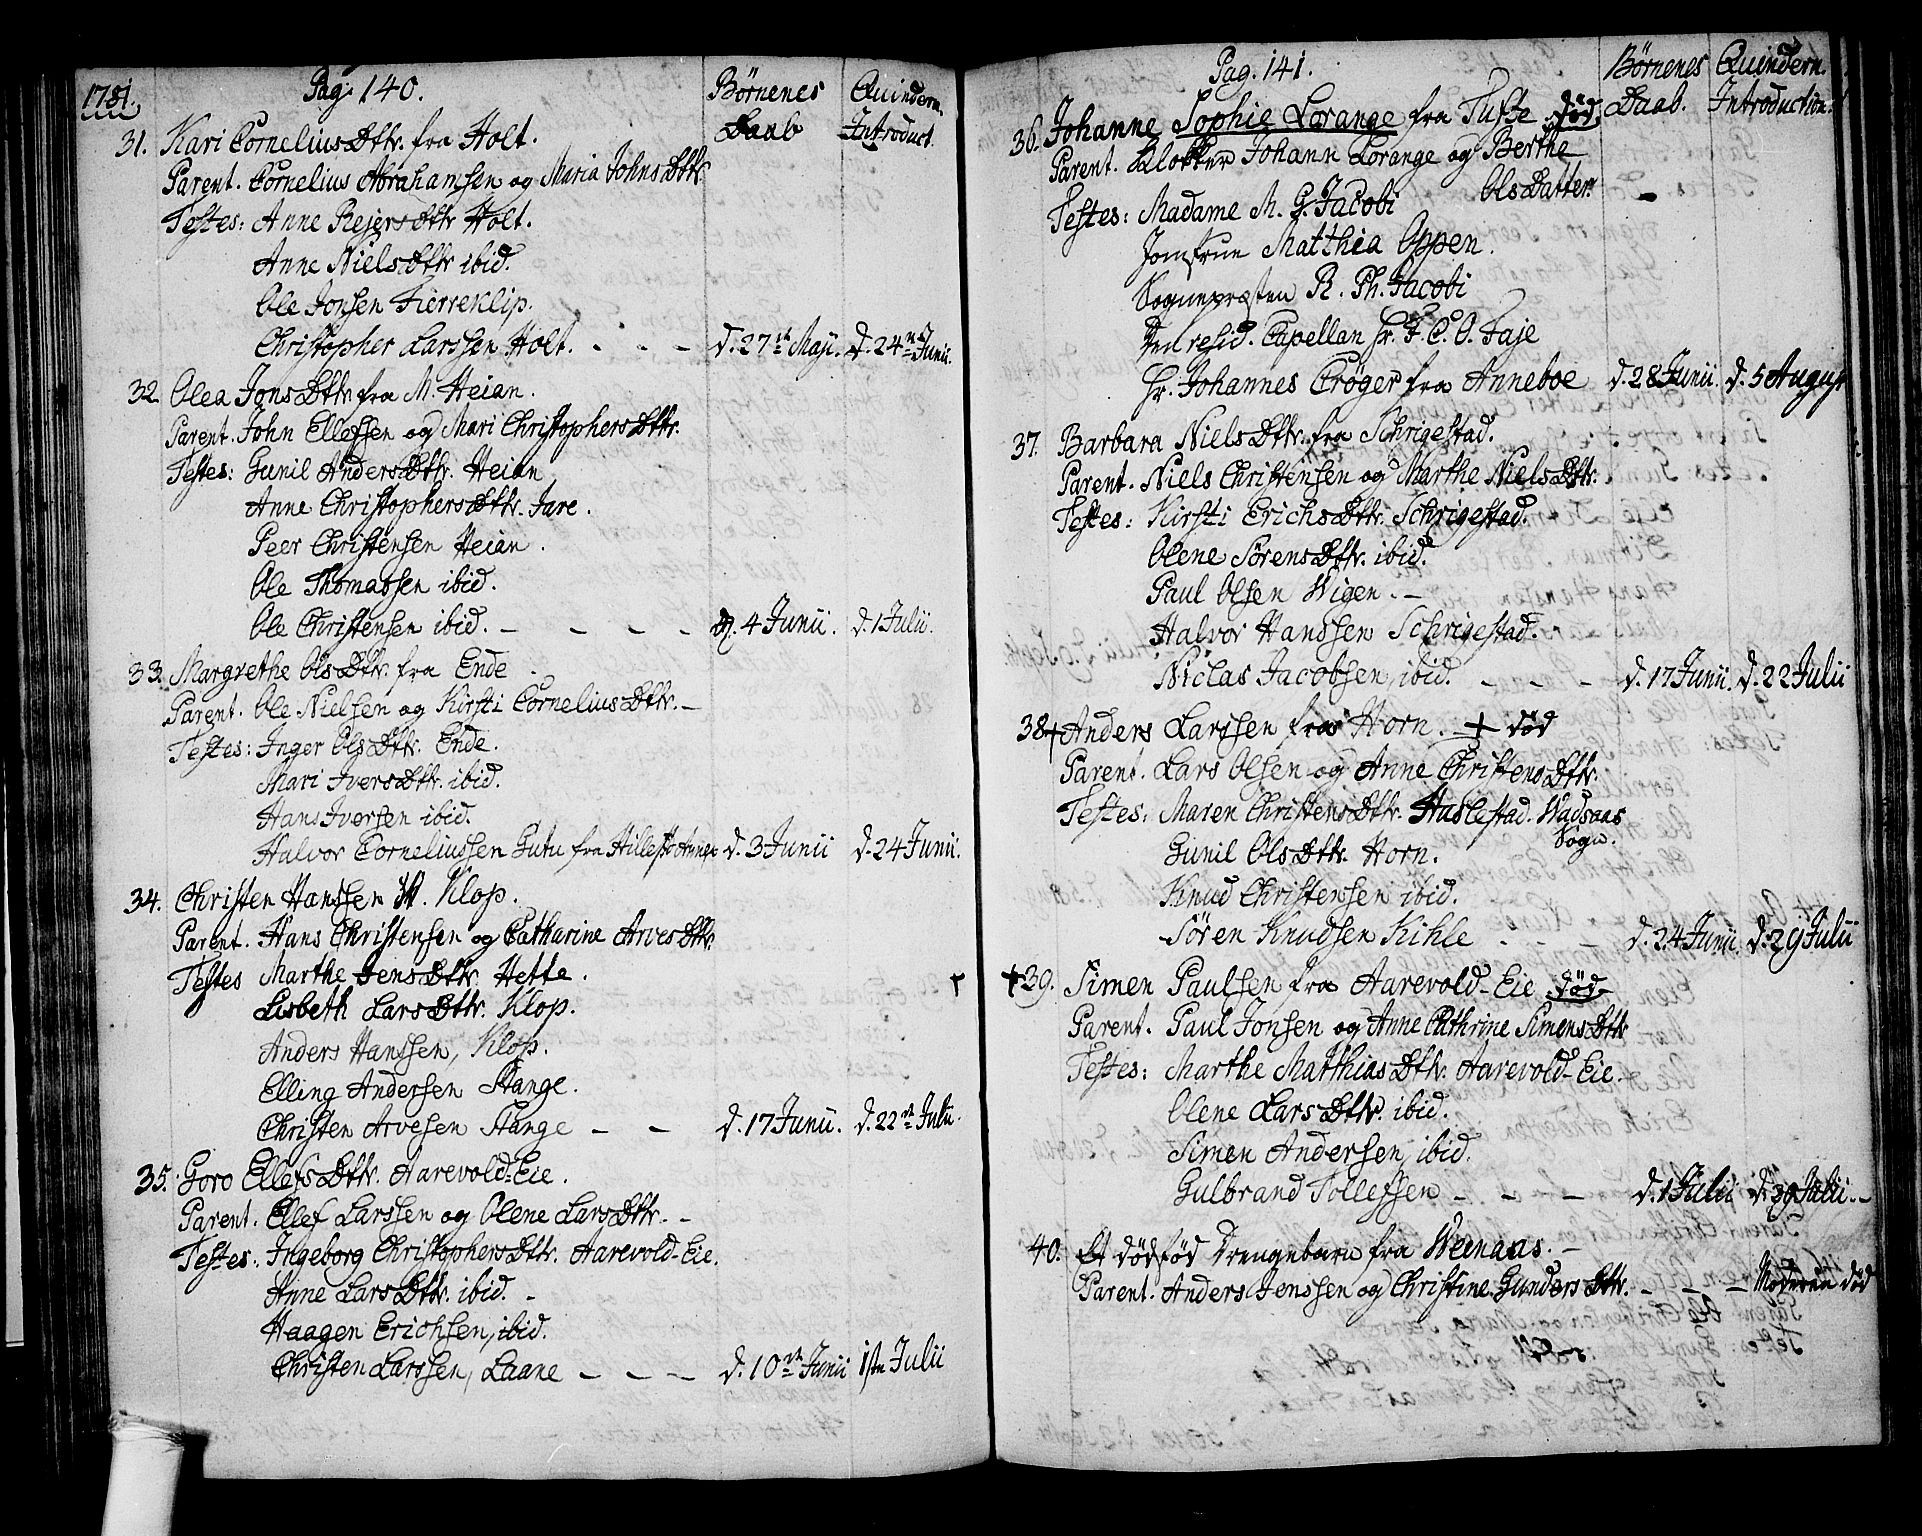 1781.
Pag. 140.
Börnenes Daab
Quindern. Introduct.
31. Kari CorneliusDttr. fra Holt.
Parent. Cornelius Abrahamsen og Maria JohnsDttr.
Testes: Anne RejersDttr. Holt.
Anne NielsDttr ibid.
Ole Jonsen Fierreklip.
Christopher Larssen Holt. - - - d. 27de Maji. d. 24de Junii.
32. Olea JonsDttr. fra M. Heian.
Parent. John Ellefsen og Mari ChristophersDttr.
Testes: Gunil AndersDttr. Heian
Anne ChristophersDttr. Jare.
Peer Christensen Heian.
Ole Thomassen ibid.
Ole Christensen ibid. - - - - d. 4 Junii. d. 1 Julii.
33. Margrethe OlsDttr. fra Ende
Parent. Ole Nielsen og Kirsti CorneliusDttr. -
Testes: Inger OlsDttr. Ende.
Mari IversDttr. ibid.
Hans Iversen ibid.
Halvor Corneliussen Gutu fra Hillest. d. 3 Junii d. 24 Junii.
34. Christen Hanssen Klop.
Parent. Hans Christensen og Catharine ArvesDttr.
Testes Marthe JensDttr. Hette.
Lisbeth LarsDttr. Klop.
Anders Hanssen, Klop.
Elling Andersen Stange.
Christen Arvesen Stange - - d. 17 Junii. d. 22de Julii.
35. Goro EllefsDttr. Aarevold-Eie.
Parent. Ellef Larssen og Olene LarsDttr. -
Testes: Ingeborg ChristophersDttr. Aarevold-Eie.
Anne LarsDttr. ibid. -
Haagen Erichsen, ibid.
Christen Larssen, Laane - - - d. 10de Junii 1ste Julii
Pag. 141.
Börnenes Daab.
Quindern. Introduction.
36. Johanne Sophie Lorange fra Tufte död
Parent. Klokker Johann Lorange og Berthe
OlsDatter.
Testes: Madame M. G. Jacobi
Jomfrue Matthia Oppen.
Sognepræsten R. Ph. Jacobi
Den resid. Capellan Hr. F. C. O. Faje
Hr. Johannes Cröger fra Anneboe d. 28 Junii. d. 5 August
37. Barbara NielsDttr. fra Schrigestad.
Parent. Niels Christensen og Marthe NielsDttr.
Testes: Kirsti ErichsDttr. Schrigestad.
Olene SörensDttr. ibid.
Paul Olsen Wigen. -
Halvor Hanssen Schrigestad.
Niclas Jacobsen, ibid. - - - d. 17 Junii. d. 22 Julii
38 + Anders Larssen fra Horn. + död
Parent. Lars Olsen og Anne ChristensDttr.
Testes: Maren ChristensDttr. Haslestad. Wadsaas
Sogn.
Gunil OlsDttr. Horn.
Knud Christensen ibid.
Sören Knudsen Kihle - - - d. 24 Junii. d. 29 Julii
+ 39. Simen Paulsen fra Aarevold-Eie död
Parent. Paul Jonsen og Anne Cathrine SimensDttr
Testes: Marthe MatthiasDttr. Aarevold-Eie.
Olene LarsDttr. ibid.
Simen Andersen, ibid.
Gulbrand Tollefssen - - - d. 1 Julii d. 29 Julii. -
40. Et dödföd Drengebarn fra Weenaas. -
Parent. Anders Jenssen og Christine GundersDttr. - - - Moderen död